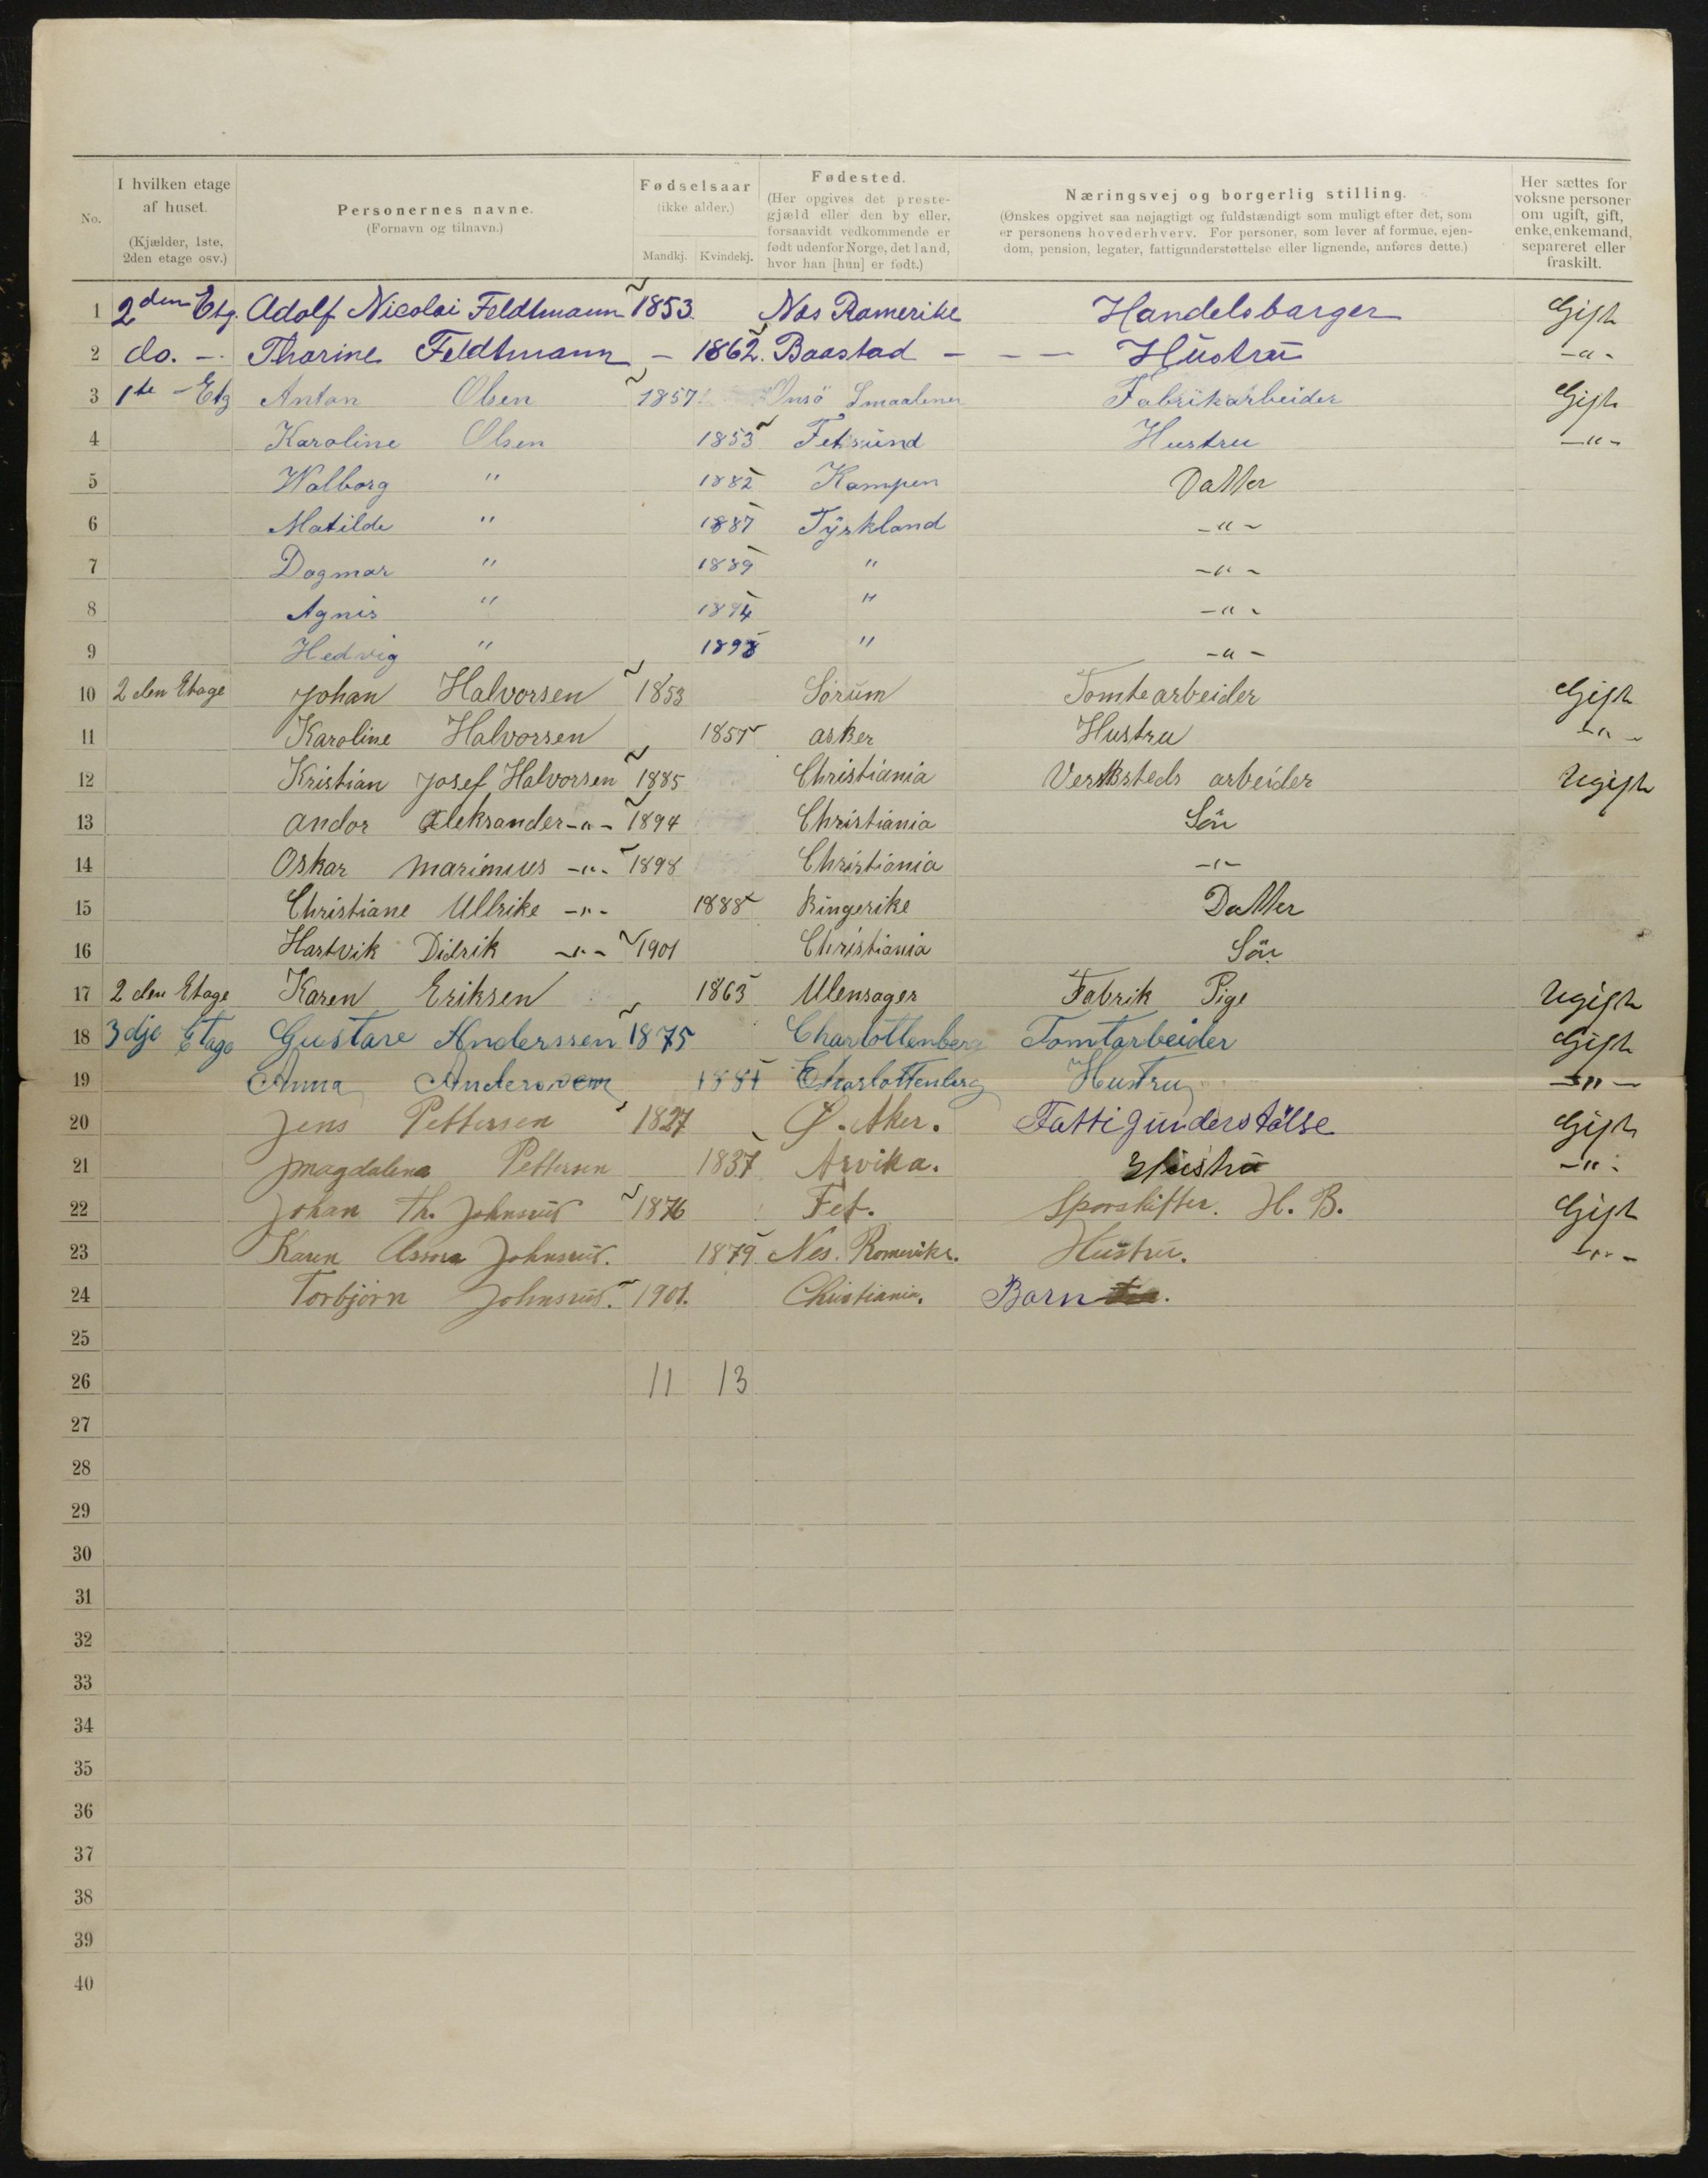 No. | I hvilken etage af huset. (Kjælder, 1ste, 2den etage osv.) | Personernes navne. (Fornavn og tilnavn.) | Fødselsaar (ikke alder.) Mandkj. Kvindekj. | Fødested. (Her opgives det prestegjæld eller den by eller, forsaavidt vedkommende er født udenfor Norge, det land, hvor han [hun] er født.) | Næringsvej og borgerlig stilling. (Ønskes opgivet saa nøjagtigt og fuldstændigt som muligt efter det, som er personens hovederhverv. For personer, som lever af formue, ejendom, pension, legater, fattigunderstøttelse eller lignende, anføres dette.) | Her sættes for voksne personer om ugift, gift, enke, enkemand, separeret eller fraskilt.
1 2den Etg. Adolf Nicolai Feldtmann 1853 Nas Ramerike Handelsbarger Gift
2 do. -. Tharine Feldtmann - 1862. Baastad - - - Hustru -"-
3 1te - Etg Anton Olsen 1857 Onsö Smaalenen Fabrikarbeider Gift
4 Karoline Olsen 1853 Fetsund Hustru -"-
5 Walborg " 1882 Kampen Datter
6 Matilde " 1887 Tyskland -"-
7 Dagmar " 1889 " -"-
8 Agnis " 1894 " -"-
9 Hedvig " 1898 " -"-
10 2den Etage Johan Halvorsen 1853 Sorum Tomtearbeider Gift
11 Karoline Halvorsen 1857 asker Hustru -"-
12 Kristian Josef Halvorsen 1885 Christiania Verksteds arbeider Ugift
13 Andor Aleksander -"- 1894 Christiania Sön
14 Oskar Marinius -"- 1898 Christiania -"-
15 Christiane Ullrike -"- 1888 Ringerike Datter
16 Hartvik Didrik -"- 1901 Christiania Sön
17 2den Etage Karen Eriksen 1863 Ulensager Fabrik Pige Ugift
18 3dje Etage Gustave Anderssen 1875 Charlottenberg Tomtarbeider Gift
19 Anna Anderssen 1881 Charlottenberg Hustru -"-
20 Jens Pettersen 1827 Ø. Aker. Fattigunderstölse Gift
21 Magdalena Pettersen 1837 Arvika. Hustru -"-
22 Johan Th. Johnsrud 1876 Fet. Sporskifter. H. B. Gift
23 Karen Johnsrud. 1879 Nes. Romerike. Hustru. -"-
24 Torbjørn Johnsrud. 1901. Christiania. Barn
25
26 11 13
27
28
29
30
31
32
33
34
35
36
37
38
39
40